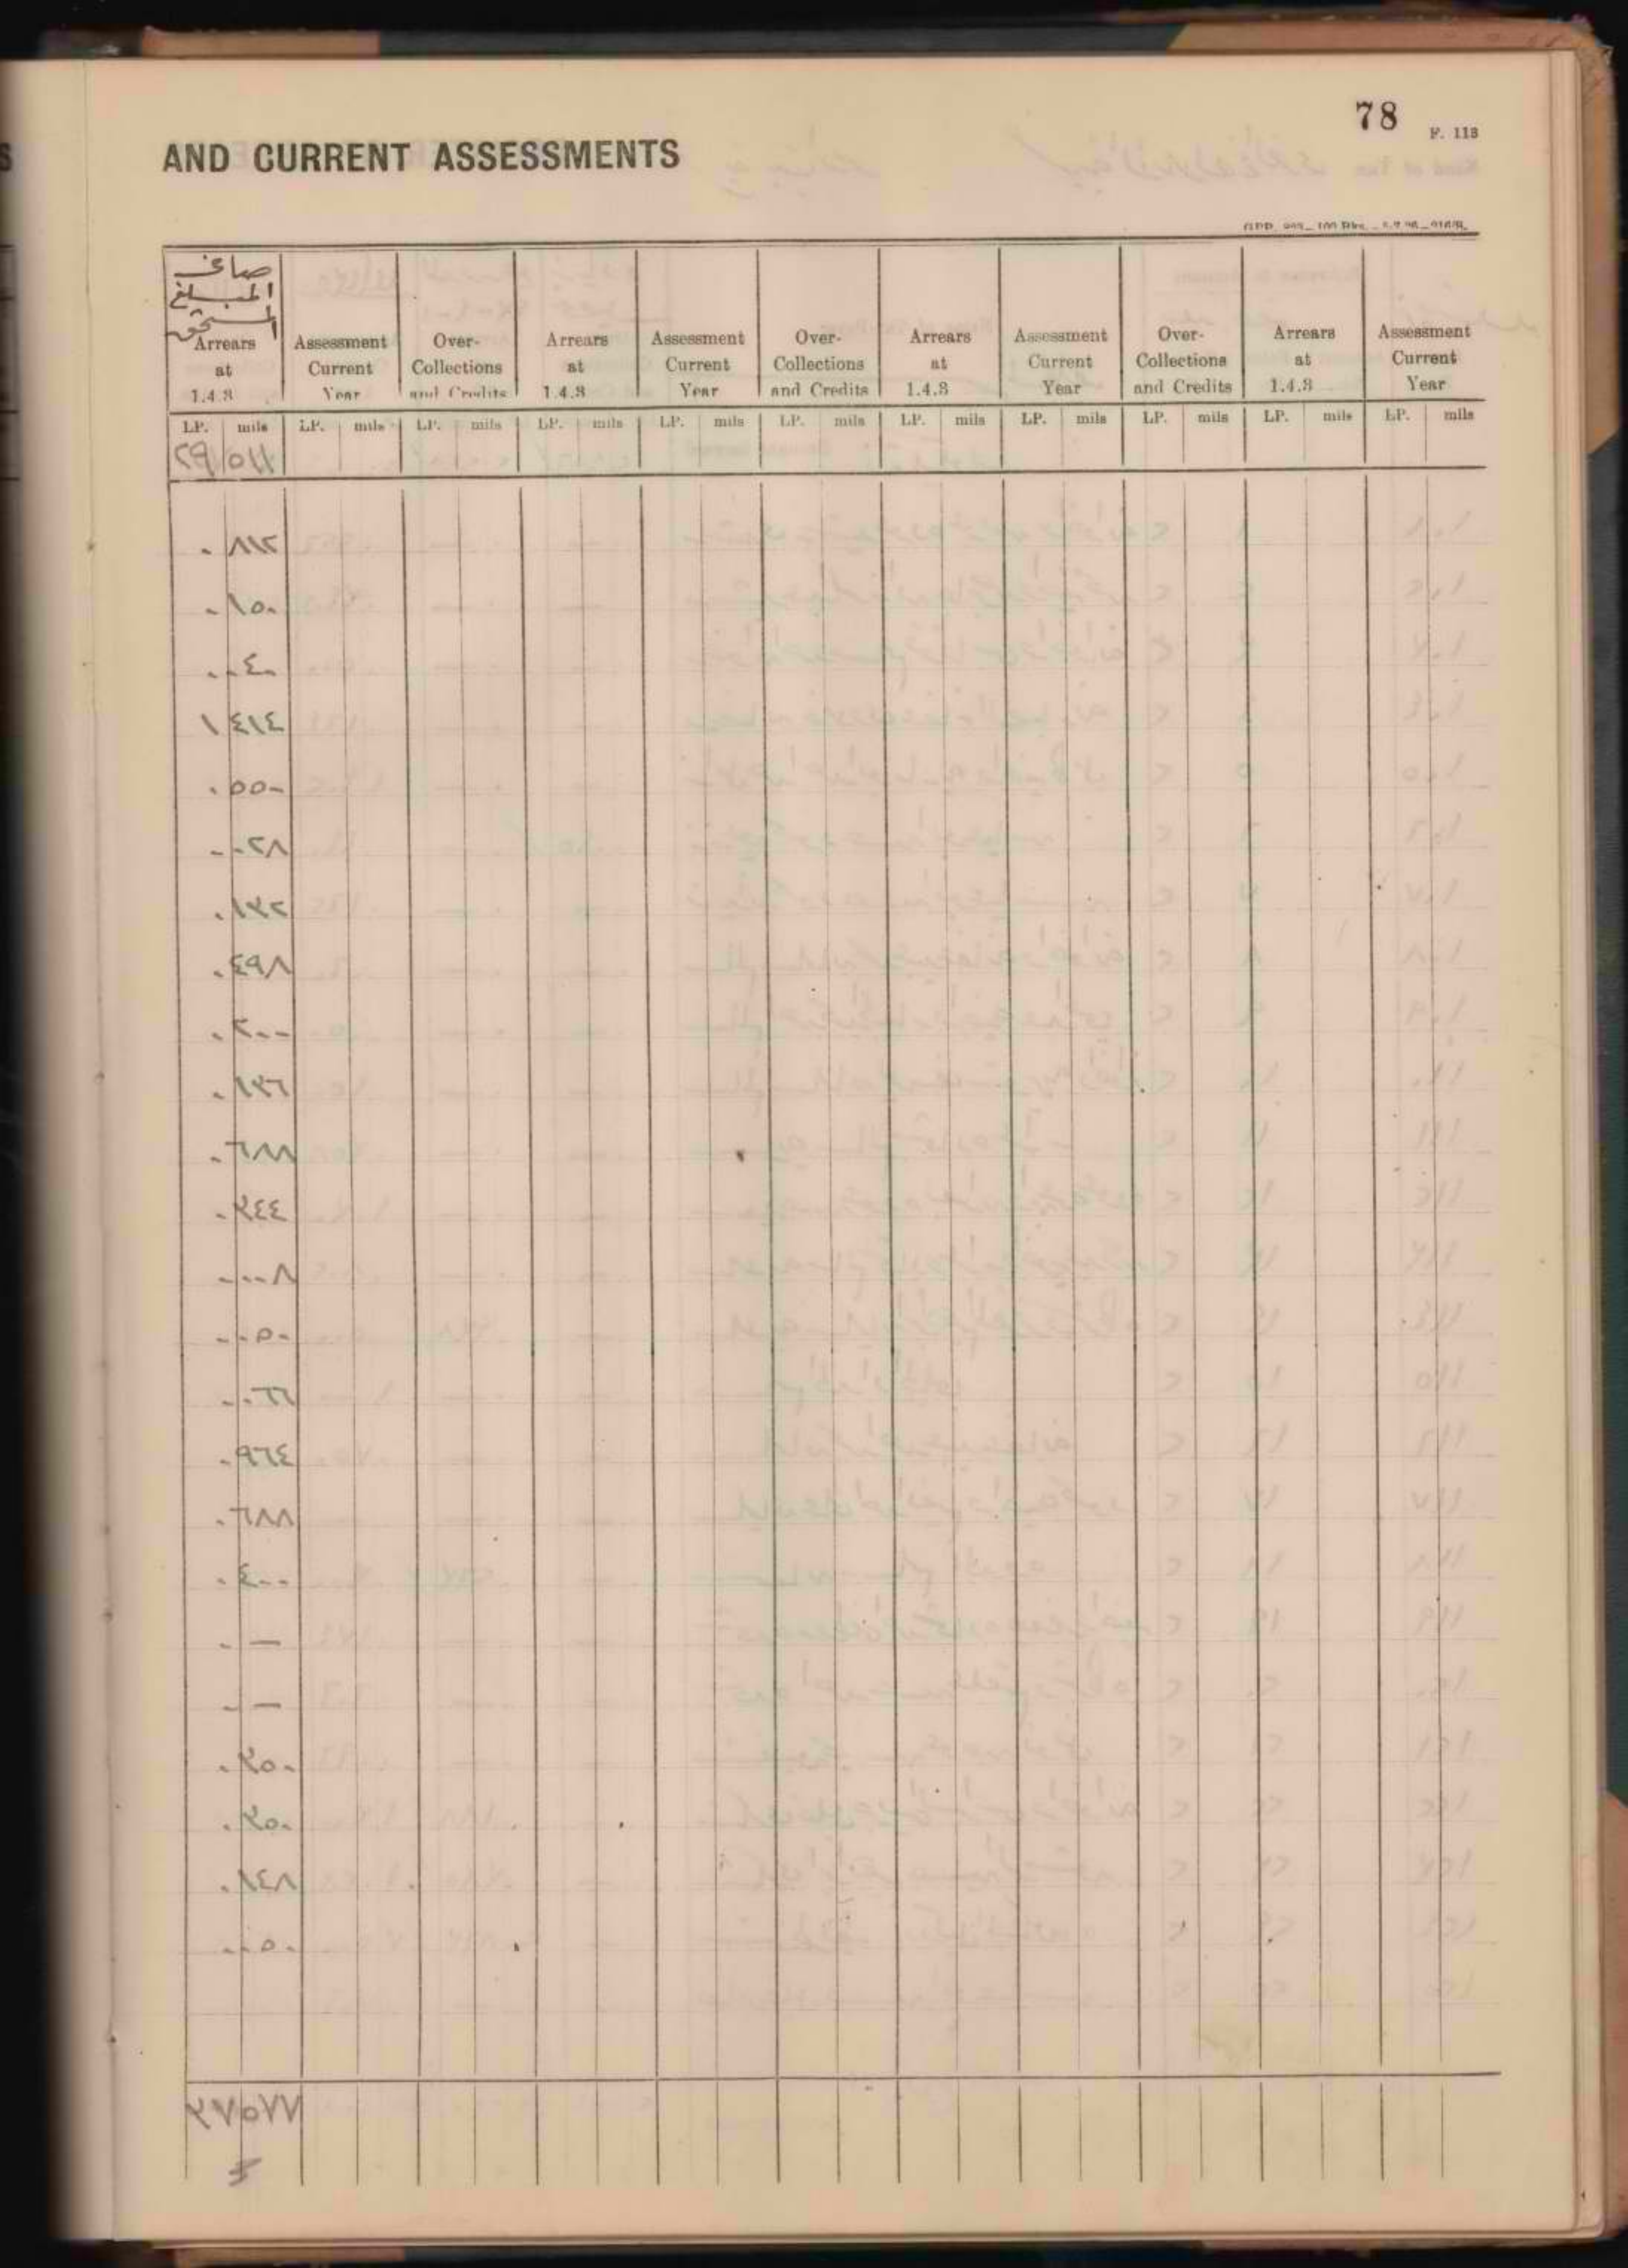 78
F. 113
AND CURRENT ASSESSMENTS
صافي
المبلغ
المستحق
Arrears at 1.4.3 Assessment Current Year Over-Collections and Credits Arrears at 1.4.3 Assessment Current Year Over-Collections and Credits Arrears at 1.4.3 Assessment Current Year Over-Collections and Credits Arrears at 1.4.3 Assessment Current Year
LP. mils LP. mils LP. mils LP. mils LP. mils LP. mils LP. mils LP. mils LP. mils LP. mils LP. mils
٢٩ ٥١١
٠ ٨١٢
٠ ١٥٠
٠ ٠٤٠
١ ٤١٤
٠ ٥٥٠
٠ ٠٢٨
٠ ١٣٢
٠ ٤٩٨
٠ ٢٠٠
٠ ١٣٦
٠ ٦٨٨
٠ ٣٤٤
٠ ٠٠٨
٠ ٠٥٠
٠ ٠٦٦
٠ ٩٦٤
٠ ٦٨٨
٠ ٤٠٠
٠ —
٠ —
٠ ٣٥٠
٠ ٣٥٠
٠ ١٤٨
٠ ٠٥٠
٣٧ ٥٧٧